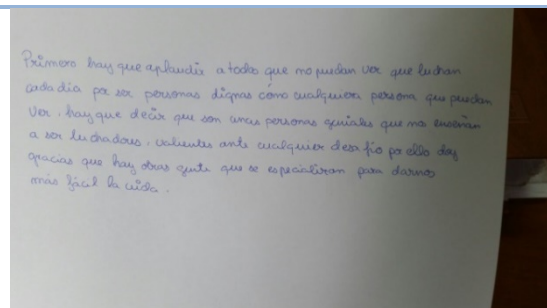 Primero hay que aplaudir a todos que no puedan ver que luchan
cada dia por ser personas dignas cómo cualquiera persona que puedan
ver, hay que decir que son unas personas geniales que nos enseñan
a ser luchadores, valientes ante cualquier desafio por ello doy
gracias que hay otras gente que se especializan para darnos
más fácil la vida.